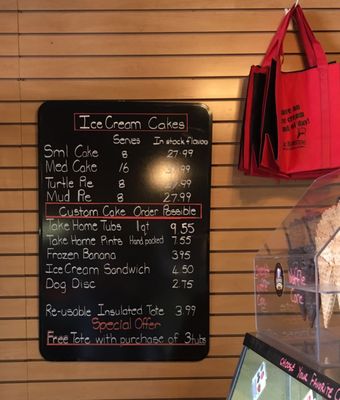 Ice Cream Cakes
Serves In stock flavors
Sml Cake 8 27.99
Med Cake 16 27.99
Turtle Pie 8 27.99
Mud Pie 8 27.99
Custom Cake Order Possible
Take Home Tubs 1qt 9.55
Take Home Pints Hand packed 7.55
Frozen Banana 3.95
Ice Cream Sandwich 4.50
Dog Disc 2.75
Re-usable Insulated Tote 3.99
Special Offer
Free Tote with purchase of 3 tubs
ice cream
Choose Your Favorite